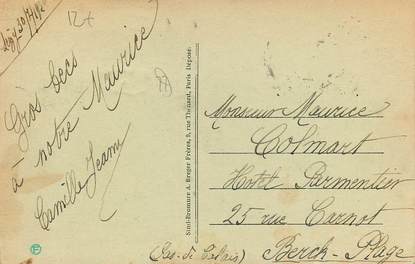 12+
Gros becs
à notre Maurice
Camille Jeanne
Simi-Bromure A. Breger Frères, 9, rue Thénard, Paris Déposé.
Monsieur Maurice
Colmart
Hotel Parmentier
25 rue Carnot
Berck-Plage
(Pas-de-Calais)